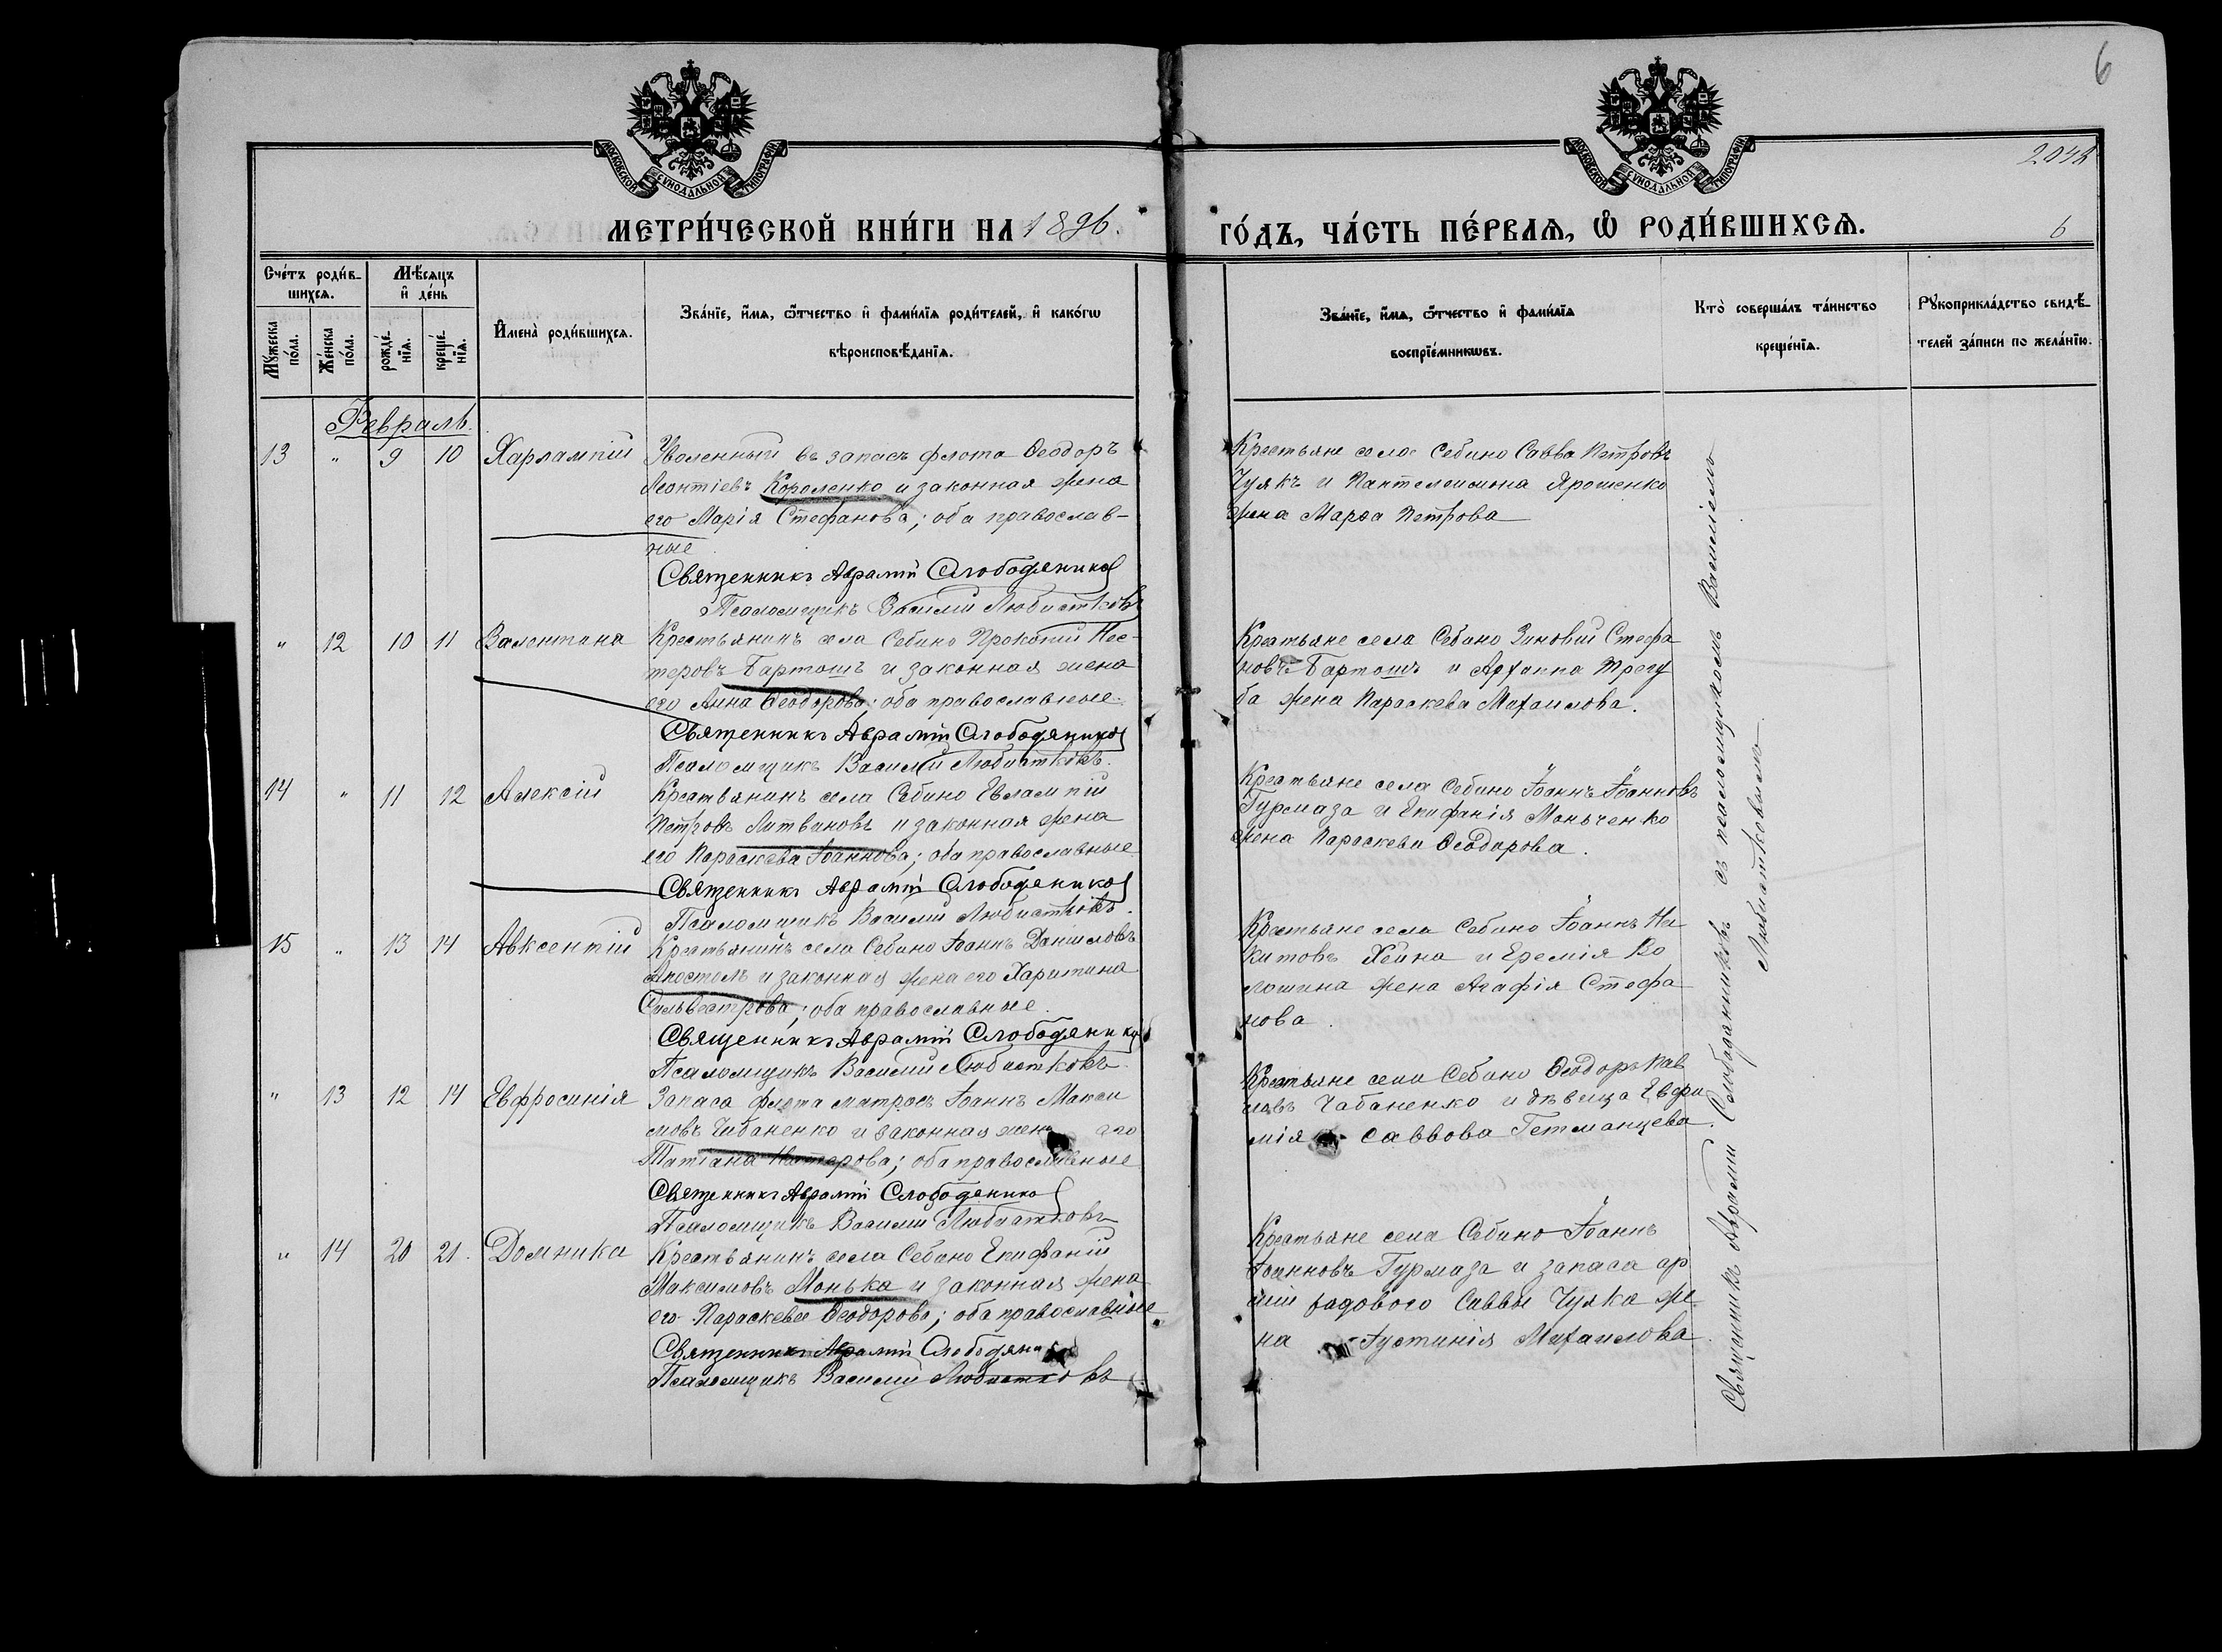 6
МОСКОВСКОЙ СѴНОДАЛЬНОЙ ТИПОГРАФІИ
МОСКОВСКОЙ СѴНОДАЛЬНОЙ ТИПОГРАФІИ
204
МЕТРИ́ЧЕСКОЙ КНИ́ГИ НА 1896.
ГО́ДЪ, ЧА́СТЬ ПЕ́РВАѦ, Ѡ҆ РОДИ́ВШИХСѦ.
6
Сче́тъ роди́в-
шихсѧ.
Мѣ́сѧцъ
и҆ де́нь
Мꙋ́жеска
по́ла.
Же́нска
по́ла.
рожде́-
нїѧ.
креще́-
нїѧ.
И҆мена̀ роди́вшихсѧ.
Зва́нїе, и҆́мѧ, ѻ҆́тчество и҆ фами́лїѧ роди́телей, и҆ како́гѡ
вѣроисповѣ́данїѧ.
Зва́нїе, и҆́мѧ, ѻ҆́тчество и҆ фами́лїѧ
воспрїе́мникѡвъ.
Кто̀ соверша́лъ та́инство
креще́нїѧ.
Рꙋкоприкла́дство свидѣ́-
телей за́писи по жела́нїю.
Февраль.
13 " 9 10 Харлампій
Уволенный въ запасъ флота Ѳеодоръ
Леонтіевъ Короленко и законная жена
его Марія Стефанова; оба православ-
ные
Священникъ Аврамій Слободяников
Псаломщикъ Василій Любистковъ
Крестьяне села Себино Савва Петровъ
Чуякъ и Пантелеимона Ярошенко
жена Марѳа Петрова
" 12 10 11 Валентина
Крестьянинъ села Себино Прокопій Нес-
теровъ Бартошъ и законная жена
его Анна Ѳеодорова; оба православные.
Священникъ Аврамій Слободяников
Псаломщикъ Василій Любистковъ.
Крестьяне села Себино Зиновій Стефа
новъ Бартошъ и Агапа Трегу
ба жена Параскева Михаилова.
14 " 11 12 Алексій
Крестьянинъ села Себино Евлампій
Петровъ Литвиновъ и законная жена
его Параскева Іоаннова; оба православные
Священникъ Аврамій Слободяников
Псаломщикъ Василій Любистковъ.
Крестьяне села Себино Іоаннъ Іоанновъ
Гурмаза и Епифанія Моньченко
жена Параскева Ѳеодорова.
15 " 13 14 Авксентій
Крестьянинъ села Себино Іоаннъ Даниловъ
Апостолъ и законная жена его Харитина
Сильвестрова; оба православные.
Священникъ Аврамій Слободяников
Псаломщикъ Василій Любистковъ
Крестьяне села Себино Іоаннъ Ни
китовъ Хейна и Еремія Во
лошина жена Агафія Стефа
нова.
" 13 12 14 Евфросинія
Запаса флота матросъ Іоаннъ Макси
мовъ Чабаненко и законная жена его
Татіана Нестерова; оба православные
Священникъ Аврамій Слободяников
Псаломщикъ Василій Любистковъ
Крестьяне села Себино Ѳеодоръ Пав
ловъ Чабаненко и дѣвица Евфи
мія Саввова Гетманцева.
" 14 20 21. Домника
Крестьянинъ села Себино Епифаній
Максимовъ Монька и законная жена
его Параскева Ѳеодорова; оба православные
Священникъ Аврамій Слободяников
Псаломщикъ Василій Любистковъ
Крестьяне села Себино Іоаннъ
Іоанновъ Гурмаза и запаса ар
міи рядового Саввы Чуяка же
на Іустинія Михаилова
Священникъ Аврамій Слободяниковъ съ псаломщикомъ Василіемъ
Любистковымъ